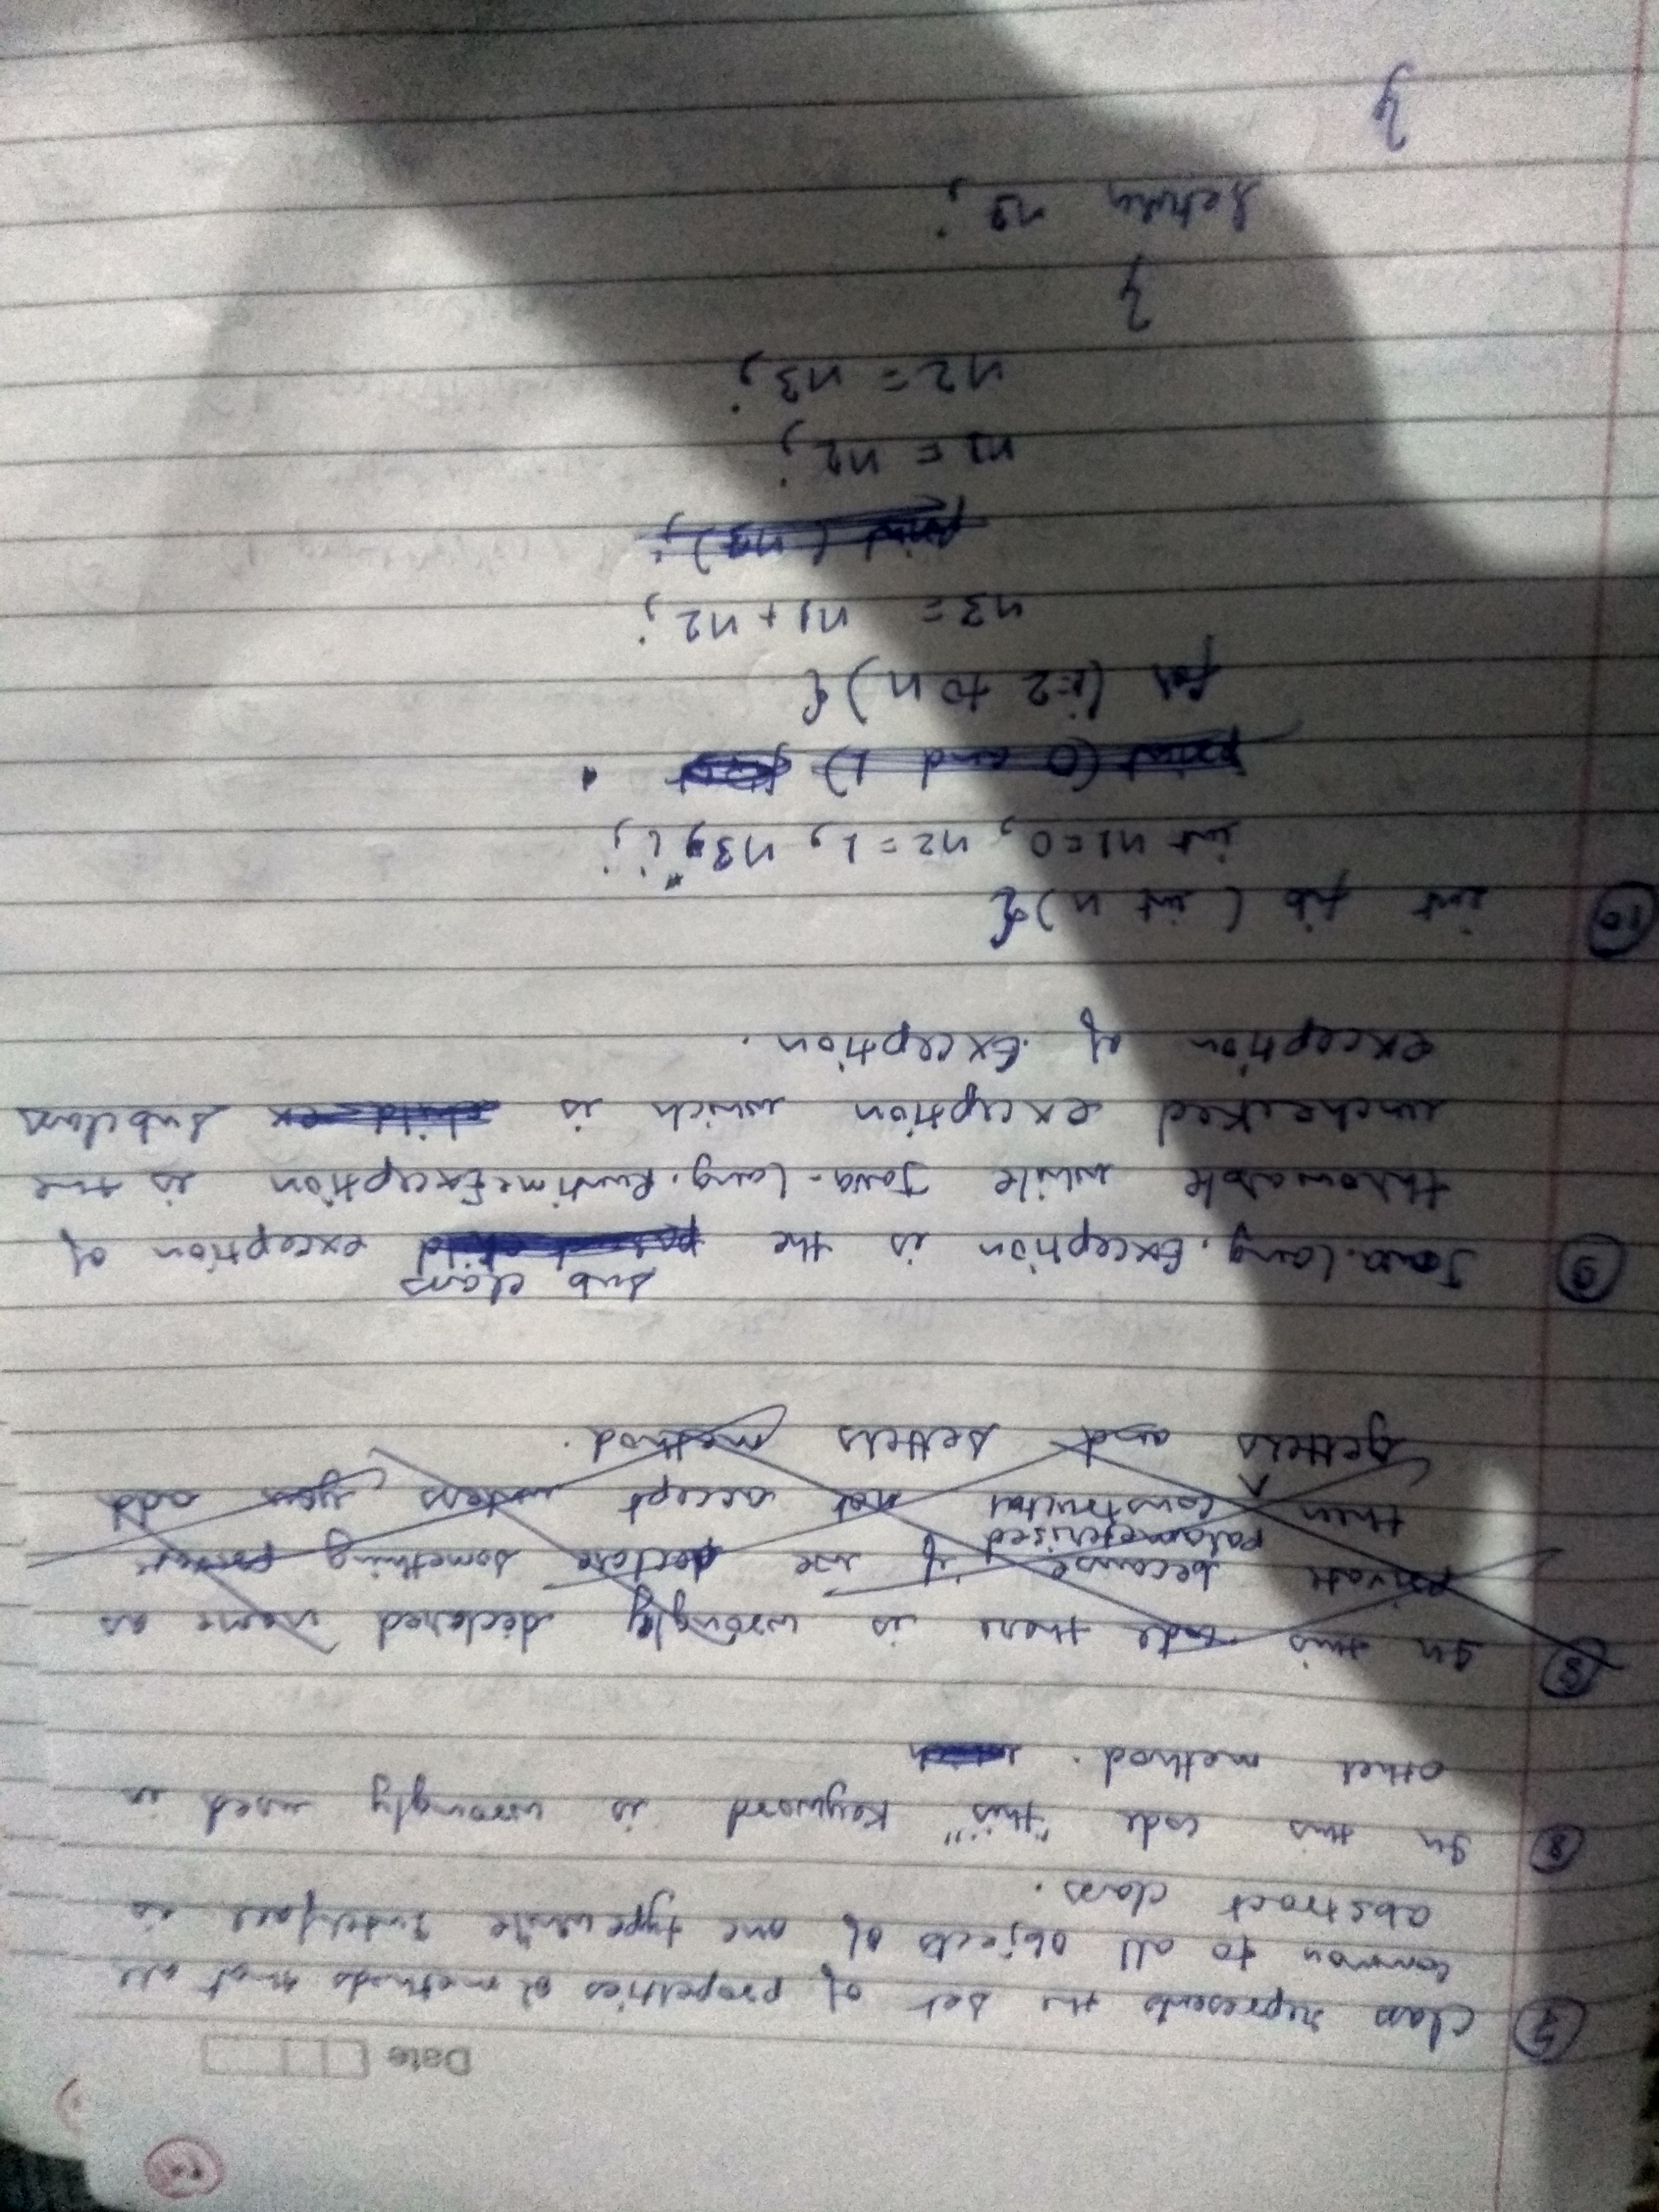 Date
7 Class represents the set of properties or methods that are
common to all objects of one type while Interface is
abstract class.
8 In this code "this" Keyword is wrongly used in
other method.
8 In this code there is wrongly declared name as
private because, if we declare something private
parameterised
then constructor not accept unless you add
getters and setters method.
sub class
9 Java.lang.Exception is the exception of
throwable while Java-lang.RuntimeException is the
unchecked exception which is subclass
exception of Exception.
10 int fib (int n){
int n1=0, n2=1, n3, i;
print (0 and 1)
for (i=2 to n){
n3= n1+n2;
print (n3);
n1 = n2;
n2 = n3;
}
return n3;
}